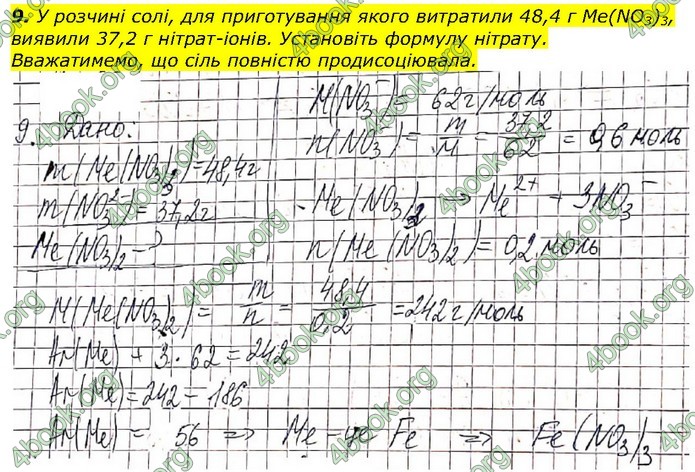 9. У розчині солі, для приготування якого витратили 48,4 г Me(NO₃)₃,
виявили 37,2 г нітрат-іонів. Установіть формулу нітрату.
Вважатимемо, що сіль повністю продисоціювала.
M(NO₃⁻) = 62 г/моль
9. Дано:
n(NO₃⁻) = m/M = 37,2/62 = 0,6 моль
m(Me(NO₃)₃) = 48,4 г
m(NO₃²⁻) = 37,2 г
Me(NO₃)₃ → Me²⁺ + 3NO₃⁻
Me(NO₃)₂ - ?
n(Me(NO₃)₂) = 0,2 моль
M(Me(NO₃)₂) = m/n = 48,4/0,2 = 242 г/моль
Ar(Me) + 3·62 = 242
Ar(Me) = 242 - 186
Ar(Me) = 56 => Me - це Fe => Fe(NO₃)₃
4book.org